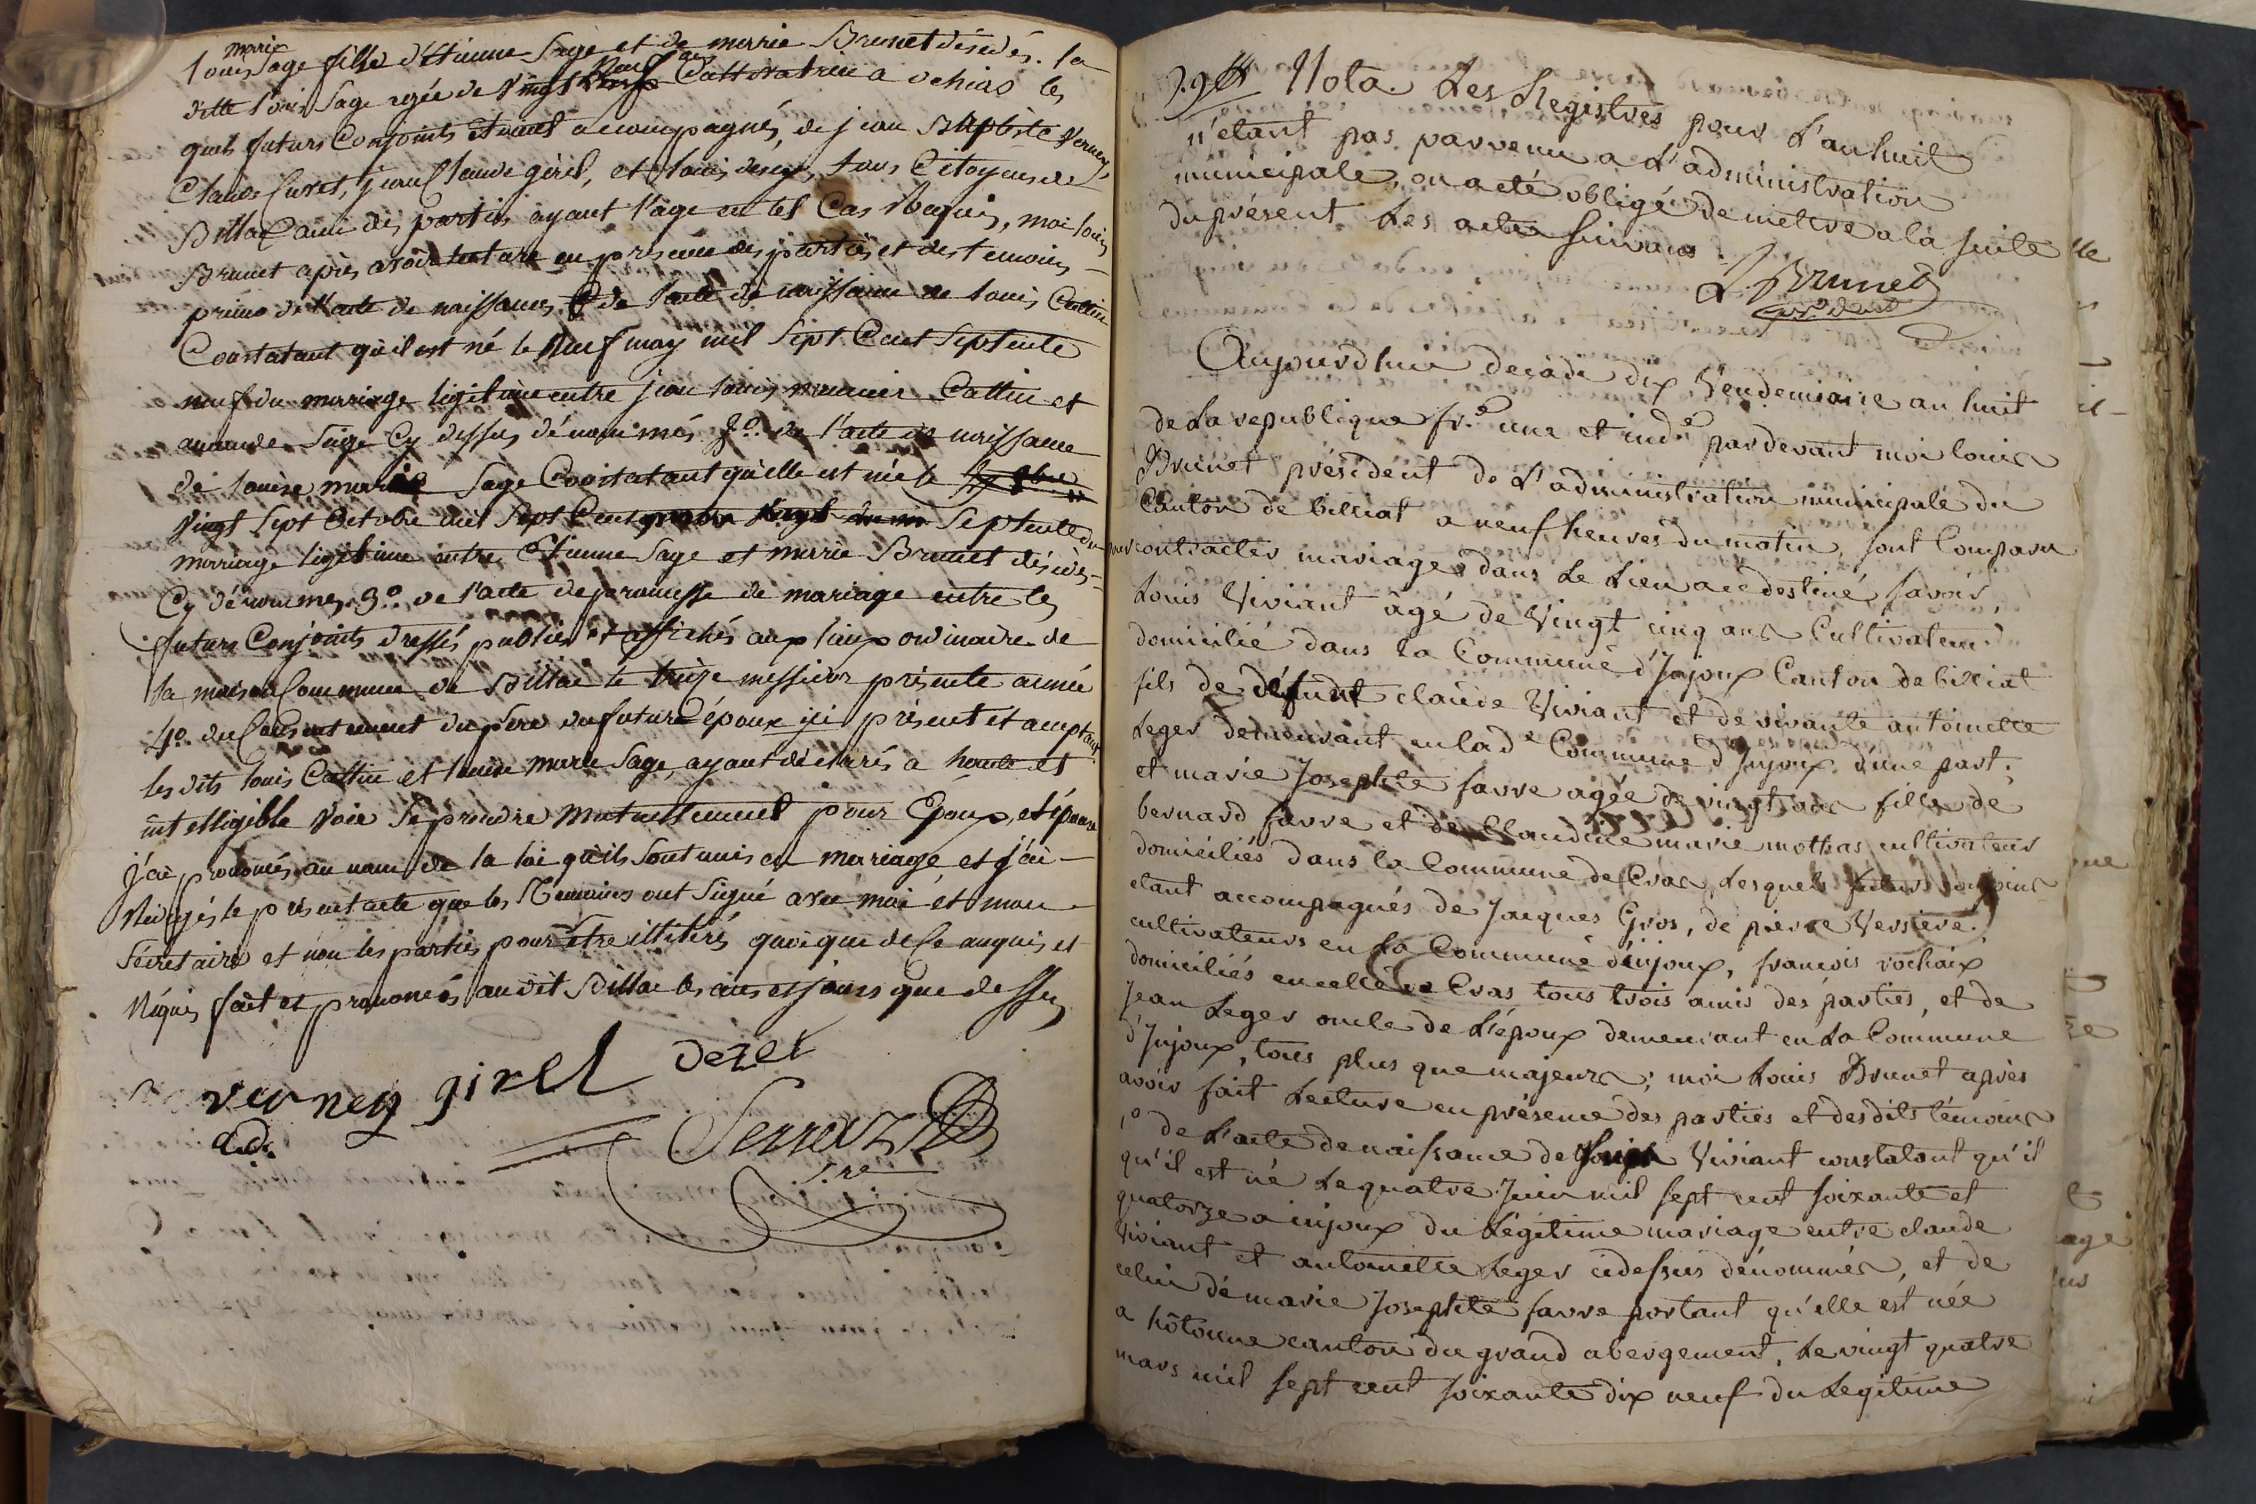 marie
louis Sage fille d'Etienne Sage et de marie Brunet décédés. la
ditte louise Sage agée de vingt neuf ans Cultivatrice a ochias les
quels futurs Conjoints étant accompagnés, de jean Baptiste Verney,
Claude Curet, jean Claude girel, et louis dezey, tous Citoyens de
Billac amis des parties ayant l'age en tel Cas Requis, moi louis
Brunet après avoir lecture en présence des parties et des temoins
primo de l'acte de naissance de louis Cattin
Constatant qu'il est né le neuf may mil Sept Cent Septente
neuf du mariage legitime entre jean louis meunier Cattin et
Sage Cy dessus dénommés 2º. de l'acte de naissance
de louise marie Sage Constatant qu'elle est née le
vingt Sept Octobre mil Sept Cent Septente du
mariage legitime entre Etienne Sage et marie Brunet décédés
Cy dénommés. 3º. de l'acte de promesse de mariage entre les
futurs Conjoints dressés publiés et affichés aux lieux ordinaire de
la maison Commune de Billac le treize messidor présente année
4º. du Consentement du père du futur époux ici présent et acceptant
les dits louis Cattin et louise marie Sage, ayant déclarés a haute et
intelligible Voix Se prendre mutuellement pour Epoux et épouse
j'ai prononcés au nom de la loi qu'ils Sont unis en mariage, et j'ai
Redigés le présent acte que les Témoins ont Signé avec moi et mon
Sécretaire et non les parties pour être illitérés quoique de Ce enquis et
Réquis fait et prononcés au dit Billac les ans et jours que dessus
verney girel dezei
a.d.
Serraz
S.re
Nota. Les Registres pour L'an huit
n'etant pas parvenu a L'administration
municipale, on a eté obligé de mettre a la suite
du présent Les actes suivans
L. Brunet
présdent
Aujourd'hui decadi dix Vendemiaire an huit
de La republique fr.e une et ind.e pardevant moi louis
Brunet président de L'administration municipale du
Canton de billiat a neuf heures du matin, sont Comparu
pour contracter mariage dans Le Lieu a ce destiné, savoir
Louis Viviant agé de Vingt cinq ans Cultivateur
domicilié dans la Commune d'Injoux Canton de billiat
fils de défunt claude Viviant et de vivante antoinette
Leger demeurant en lad.e Commune d'Injoux d'une part;
et marie Josephte favre agée de vingt ans fille de
bernard favre et de Claudine marie mothas cultivateurs
domiciliés dans la Commune de Cras, Lesquels futurs conjoints
étant accompagnés de Jacques Gros, de pierre Versiere
cultivateurs en La Commune d'injoux, francois rochaix
domiciliés en celle de Cras tous trois amis des parties, et de
Jean Leger oncle de L'époux demeurant en La Commune
d'Injoux, tous plus que majeurs; moi Louis Brunet après
avoir fait Lecture en présence des parties et desdits témoins
1º de L'acte de naissance de Louis Viviant constatant qu'il
qu'il est né Le quatre Juin mil sept cent soixante et
quatorze a injoux du Légitime mariage entre claude
Viviant et antoinette Leger cidessus dénommés, et de
celui de marie Josephte favre portant qu'elle est née
a hôtonne canton du grand abergement, Le vingt quatre
mars mil sept cent soixante dix neuf du Legitime